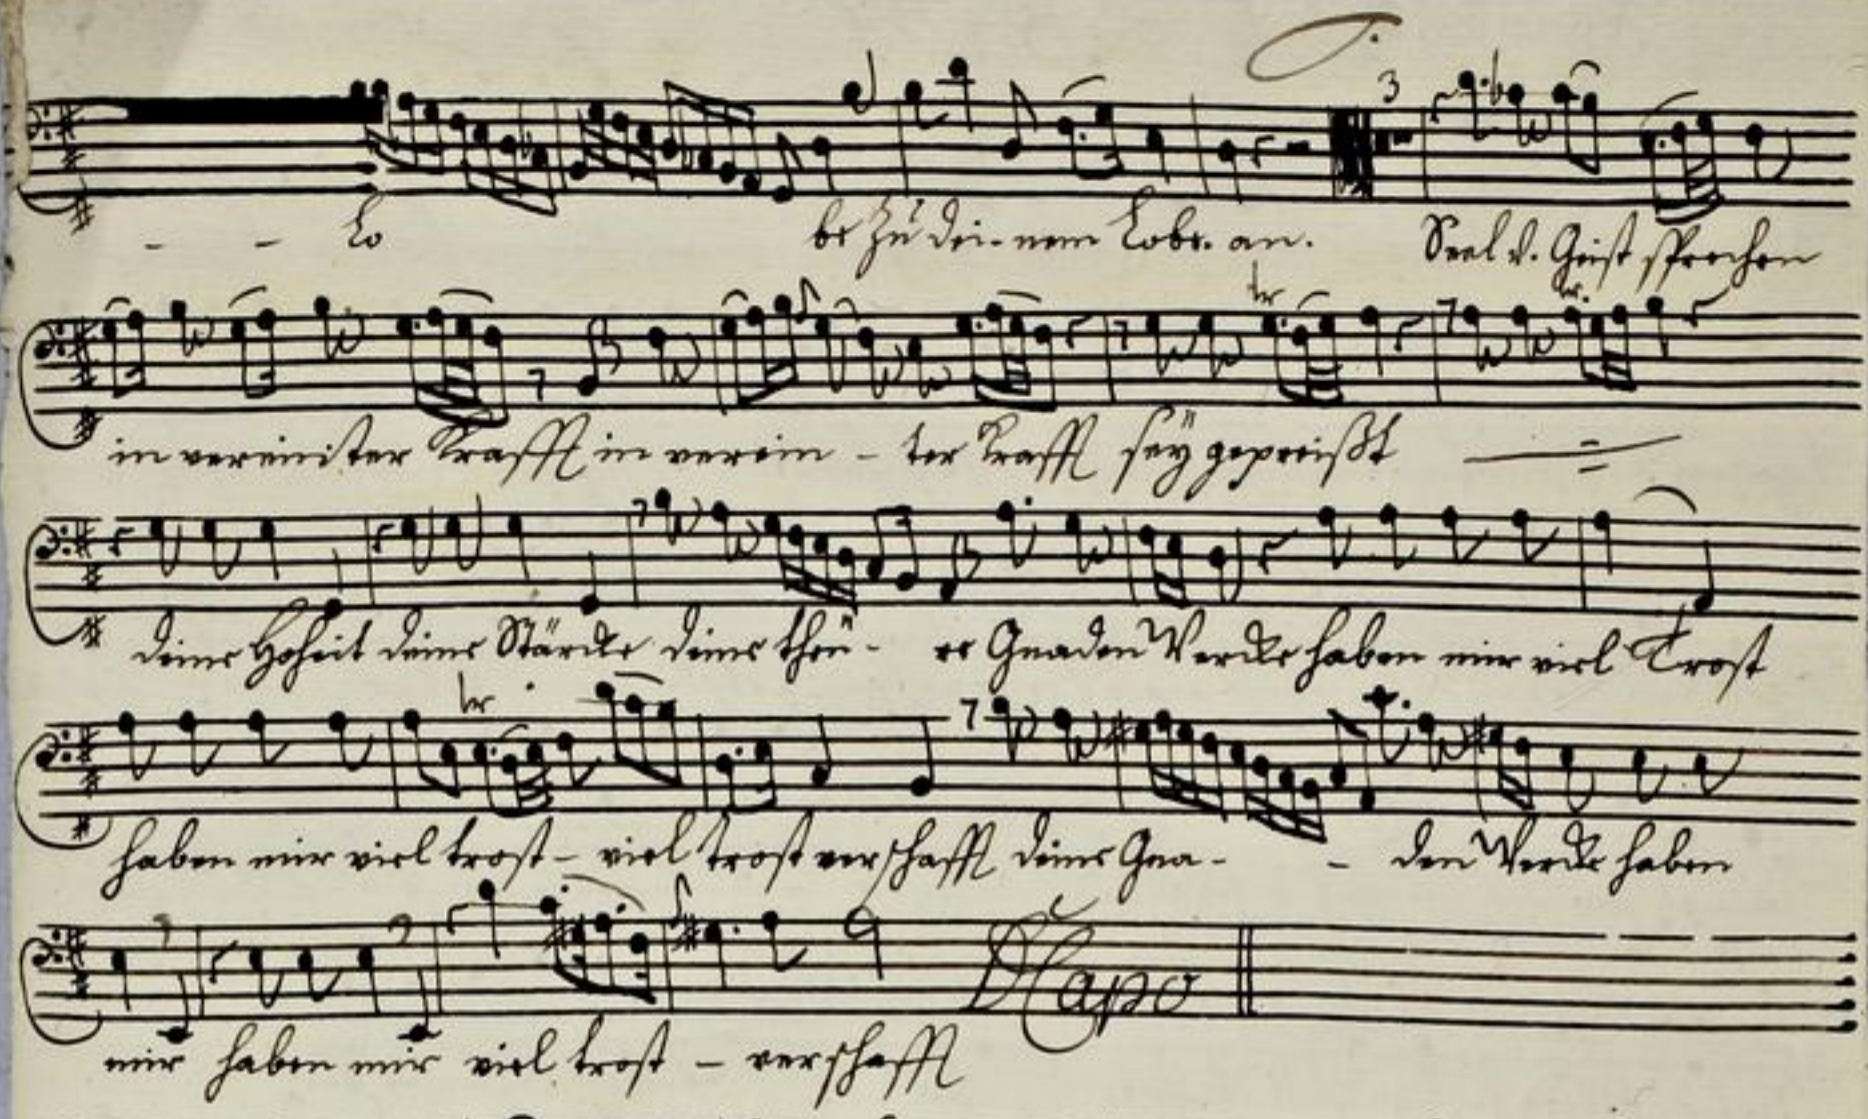 3
- - Lo be zu dei-nem Lobe. an. Seel v. Geist sprechen
tr tr.
in vereinister Krafft in verein - ter Krafft sey gepreißt
deine Hoheit deine Stärcke deine theu- re Gnaden Wercke haben mir viel Trost
tr
haben mir viel trost - viel trost verschafft deine Gna- - den Wercke haben
DCapo
mir haben mir viel trost - verschafft